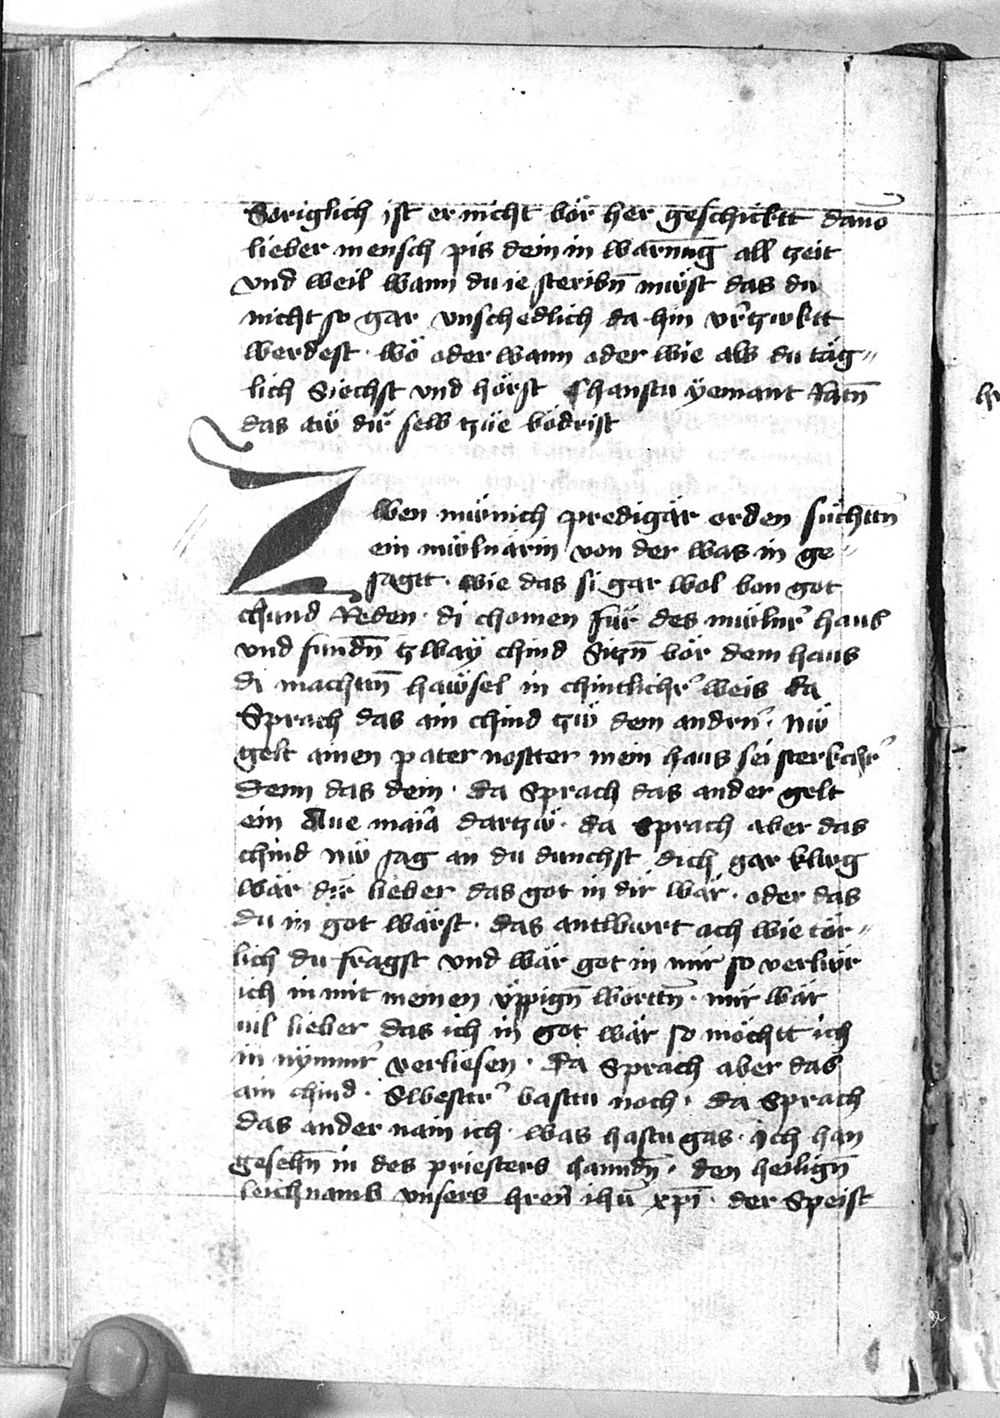 Soriglich ist er nicht vör her geschicktt davō
lieber mensch pis dein in warnūg all tzeit
vnd weil wann du ie steribn̄ müest das du
nicht so gar vnschedlich da hin v̓rtzwktt
werdest · wö oder wann oder wie als du täg〃
lich Siechst vnd hörst Chanstu yemant Ratn̄
das tüe dir selb tzüe vödrist
Zwen münich predigär orden süchttn̄
ein mülnärin von der was in ge〃
sagtt · wie das si gar wol von got
chund Reden · di chomen für des müln̓ haus
vnd fundn̄ tzway chind Sitzn̄ vör dem haus
di machttn̄ häwsel in chintlich̓ weis da
Sprach das ain chind tzü dem andrn̓ · nü
gelt ainen pater nostter mein haus sei sterkch̓
denn das dein · da Sprach das ander gelt
ein Aue maīa dartzü · da sprach aber das
chind nü sag an du dunchst dich gar klueg
wär dir lieber das got in dir wär · oder das
du in got wärst · das antwurt ach wie tör〃
lich du fragst vnd wär got in mir so verlür
ich in mit meinen üppign̄ worttn̄ · mir wär
vil lieber das ich in got wär so möchtt ich
in nymm̓ verliesen · da Sprach aber das
ain chind · Swestt̓ vasttu noch · da Sprach
das ander nain ich · was hastu gas · ich han
gesehn̄ in des priesters hanndn̄ · den heilign̄
leichnamb vnsers hren̄ ihū xp̄i · der Speist